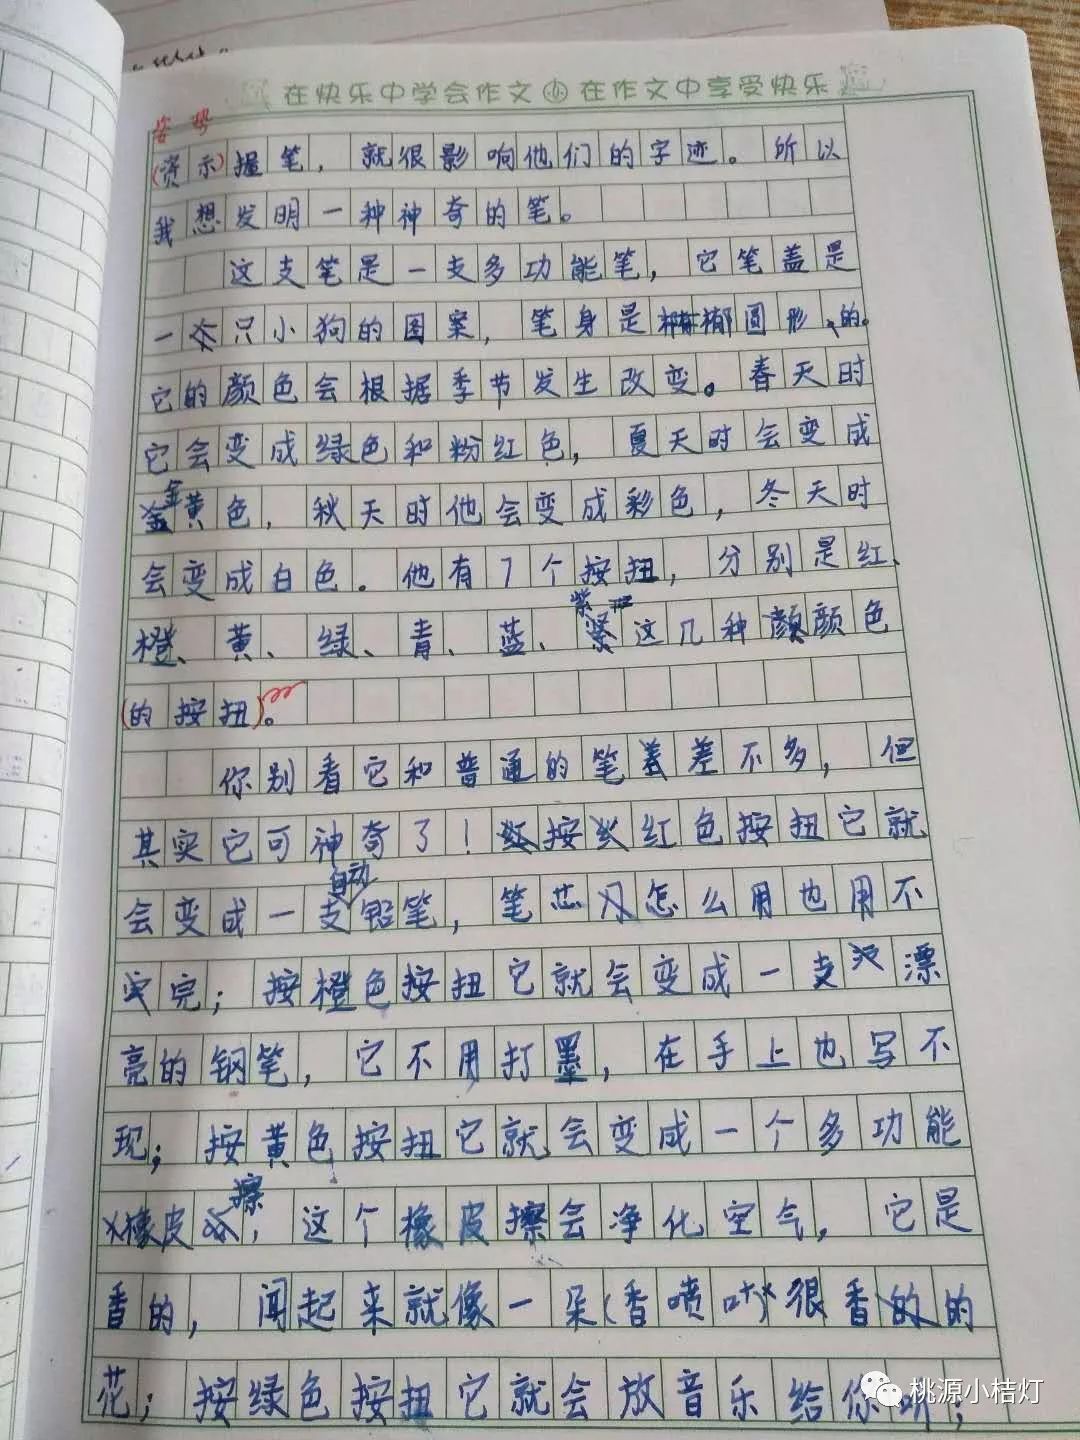 在快乐中学会作文 小 在作文中享受快乐
姿势
(资示)握笔，就很影响他们的字迹。所以
我想发明一种神奇的笔。
这支笔是一支多功能笔，它笔盖是
一只小狗的图案，笔身是椭圆形的。
它的颜色会根据季节发生改变。春天时
它会变成绿色和粉红色，夏天时会变成
金黄色，秋天时他会变成彩色，冬天时
会变成白色。他有7个按扭，分别是红、
橙、黄、绿、青、蓝、紫这几种颜色
(的按扭)。
你别看它和普通的笔差不多，但
其实它可神奇了！按红色按扭它就
会变成一支自动铅笔，笔芯怎么用也用不
完；按橙色按扭它就会变成一支漂
亮的钢笔，它不用打墨，在手上也写不
现；按黄色按扭它就会变成一个多功能
橡皮擦，这个橡皮擦会净化空气，它是
香的，闻起来就像一朵(香喷叶)很香的
花；按绿色按扭它就会放音乐给你听；
桃源小桔灯